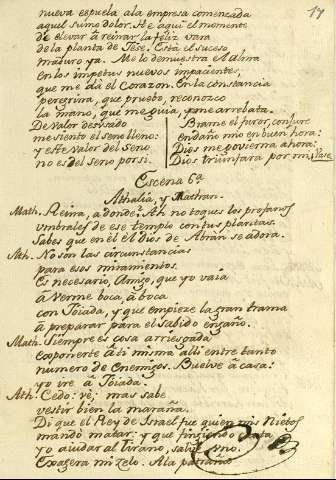 17
nueva espuela a la empresa comenzada
aquel sumo dolor. He aquí el momento
de elevar â reinar la feliz vara
de la planta de Jese. Está el suceso
maduro ya. Me lo demuestra Adhra
en los impetus nuevos impacientes,
que me dá el Corazon. En la constancia
peregrina, que pruebo, reconozco
la mano, que me guia, y me arrebata.
De valor desusado
me siento el seno lleno:
y este valor del seno
no es del seno por si.
Brame el furor, conjure
en daño mio en buen hora:
Dios me govierna ahora:
Dios triunfara por mi. Vase
Escena 6ª
Athalia, y Mathan.
Math. Reina, a donde? Ah no toques los profanos
umbrales de ese templo con tus plantas.
Sabes que en él el dios de Abrân se adora.
Ath. No son las circunstancias
para esos miramientos.
Es necesario, Amigo, que yo vaia
â verme boca, â boca
con Joiada, y que empieze la gran trama
â preparar para el sabido engaño.
Math. Siempre es cosa arriesgada
exponerte â ti misma alli entre tanto
numero de enemigos. Buelve â casa:
yo iré â Joiada.
Ath. Cedo: vé; mas sabe
vestir bien la maraña.
Di que el Rey de Israel fue quien mis Nietos
mandó matar: y que fingiendo
yo ayudar al Tirano, salvé uno.
Exagera mi zelo. A la patraña